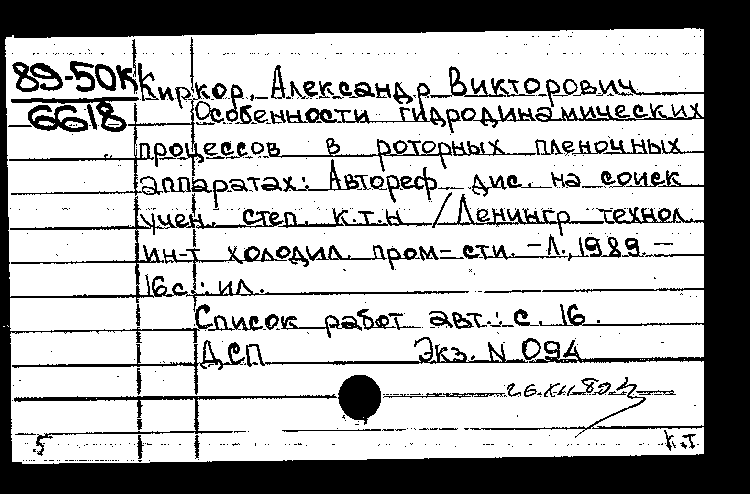 89-50К
6618
Киркор, Александр Викторович
Особенности гидродинамических
процессов в роторных пленочных
аппаратах: Автореф. дис. на соиск
учен. степ. к.т.н /Ленингр технол
ин-т холодил. пром-сти. -Л., 1989. -
16с.: ил.
Список работ авт.: с. 16.
ДСП Экз. N 094
26.XII.89
5